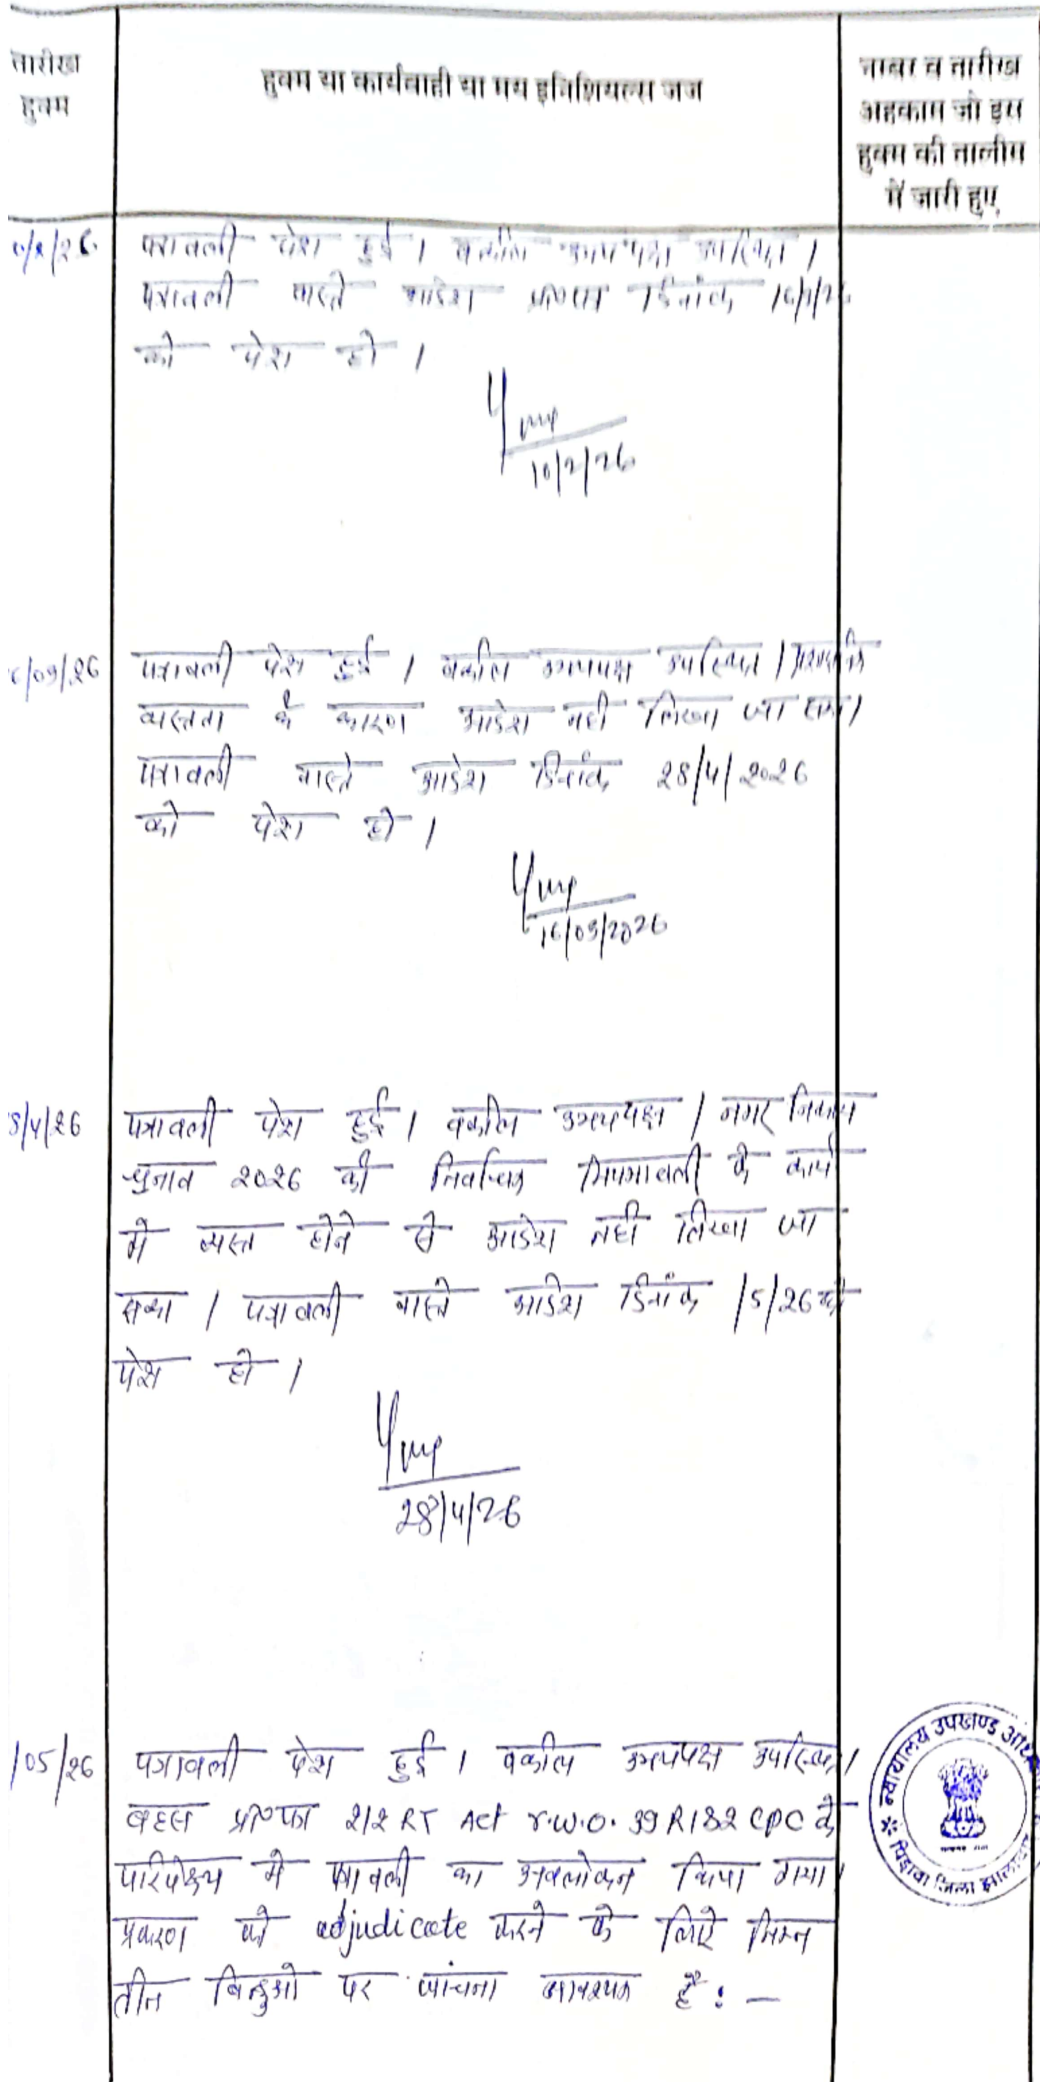 तारीख हुक्म
हुक्म या कार्यवाही या मय इनिशियल्स जज
नम्बर व तारीख
अहकाम जो इस
हुक्म की तालीम
में जारी हुए
पत्रावली पेश हुई । वकील उभयपक्ष उपस्थित ।
पत्रावली वास्ते आदेश प्रा०पत्र दिनांक
को पेश हो ।
10/2/26
/03/26 पत्रावली पेश हुई । वकील उभयपक्ष उपस्थित ।
व्यस्तता के कारण आदेश नही लिखा जा सका ।
पत्रावली वास्ते आदेश दिनांक 28/4/2026
को पेश हो ।
16/03/2026
8/4/26 पत्रावली पेश हुई । वकील उभयपक्ष । नगर निकाय
चुनाव 2026 की के कार्य
मे व्यस्त होने से आदेश नही लिखा जा
सका । पत्रावली वास्ते आदेश दिनांक /5/26 को
पेश हो ।
28/4/26
/05/26 पत्रावली पेश हुई । वकील उभयपक्ष उपस्थित ।
बहस प्रा०पत्र 212 RT Act r.w.o. 39 R 1&2 CPC के
परिपेक्ष्य मे पत्रावली का अवलोकन किया गया ।
प्रकरण को adjudicate करने के लिऐ निम्न
तीन बिन्दुओ पर जांचना आवश्यक है : —
न्यायालय उपखण्ड
पिड़ावा जिला झालावाड़